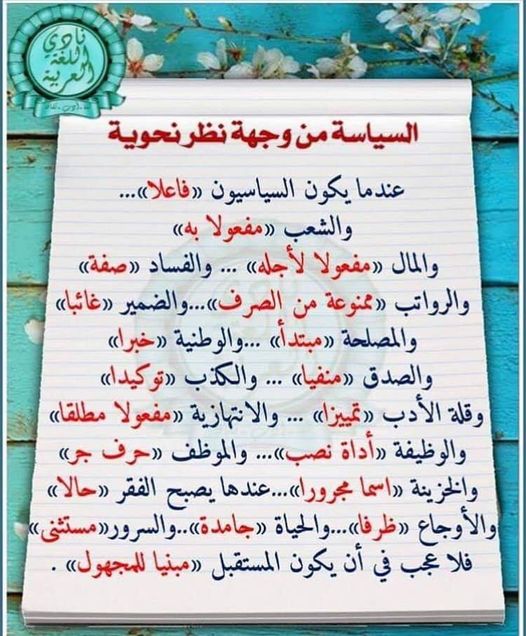 نادي
اللغة
العربية
السياسة من وجهة نظر نحوية
عندما يكون السياسيون «فاعلا»...
والشعب «مفعولا به»
والمال «مفعولا لأجله» ... والفساد «صفة»
والرواتب «ممنوعة من الصرف»...والضمير «غائبا»
والمصلحة «مبتدأ» ...والوطنية «خبرا»
والصدق «منفيا» ... والكذب «توكيدا»
وقلة الأدب «تمييزا» ... والانتهازية «مفعولا مطلقا»
والوظيفة «أداة نصب»... والموظف «حرف جر»
والخزينة «اسما مجرورا»...عندها يصبح الفقر «حالا»
والأوجاع «ظرفا»...والحياة «جامدة»..والسرور«مستثنى»
فلا عجب في أن يكون المستقبل «مبنيا للمجهول» .